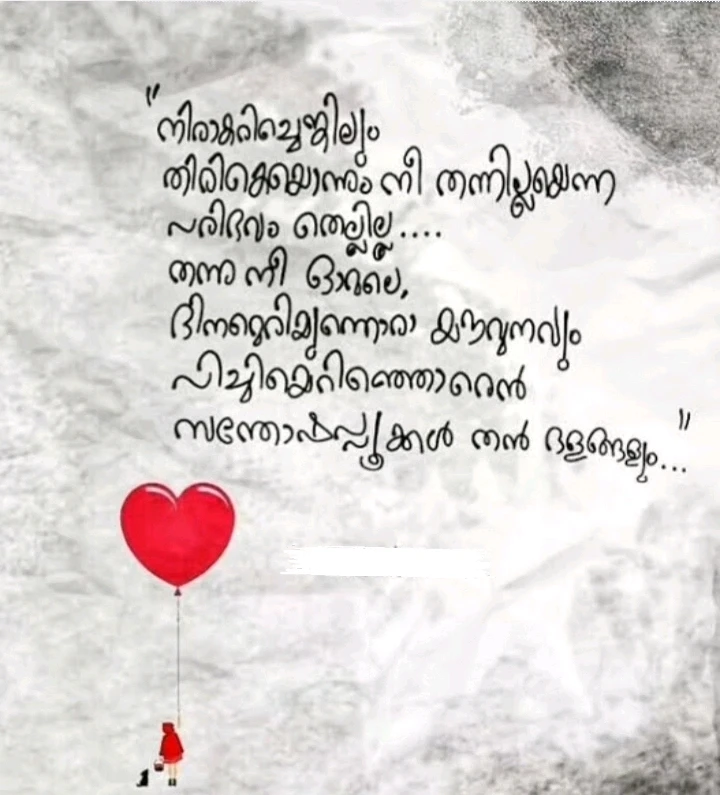 "നിരാകരിച്ചെങ്കിലും
തിരികെയൊന്നും നീ തന്നില്ലയെന്ന
പരിഭവം തെല്ലില്ല....
തന്നു നീ ഓർമ്മലെ,
ദിനമെരിയുന്നൊരാ യൗവ്വനവും
പിച്ചിയെറിഞ്ഞൊറെൻ
സന്തോഷപ്പൂക്കൾ തൻ ദളങ്ങളും..."